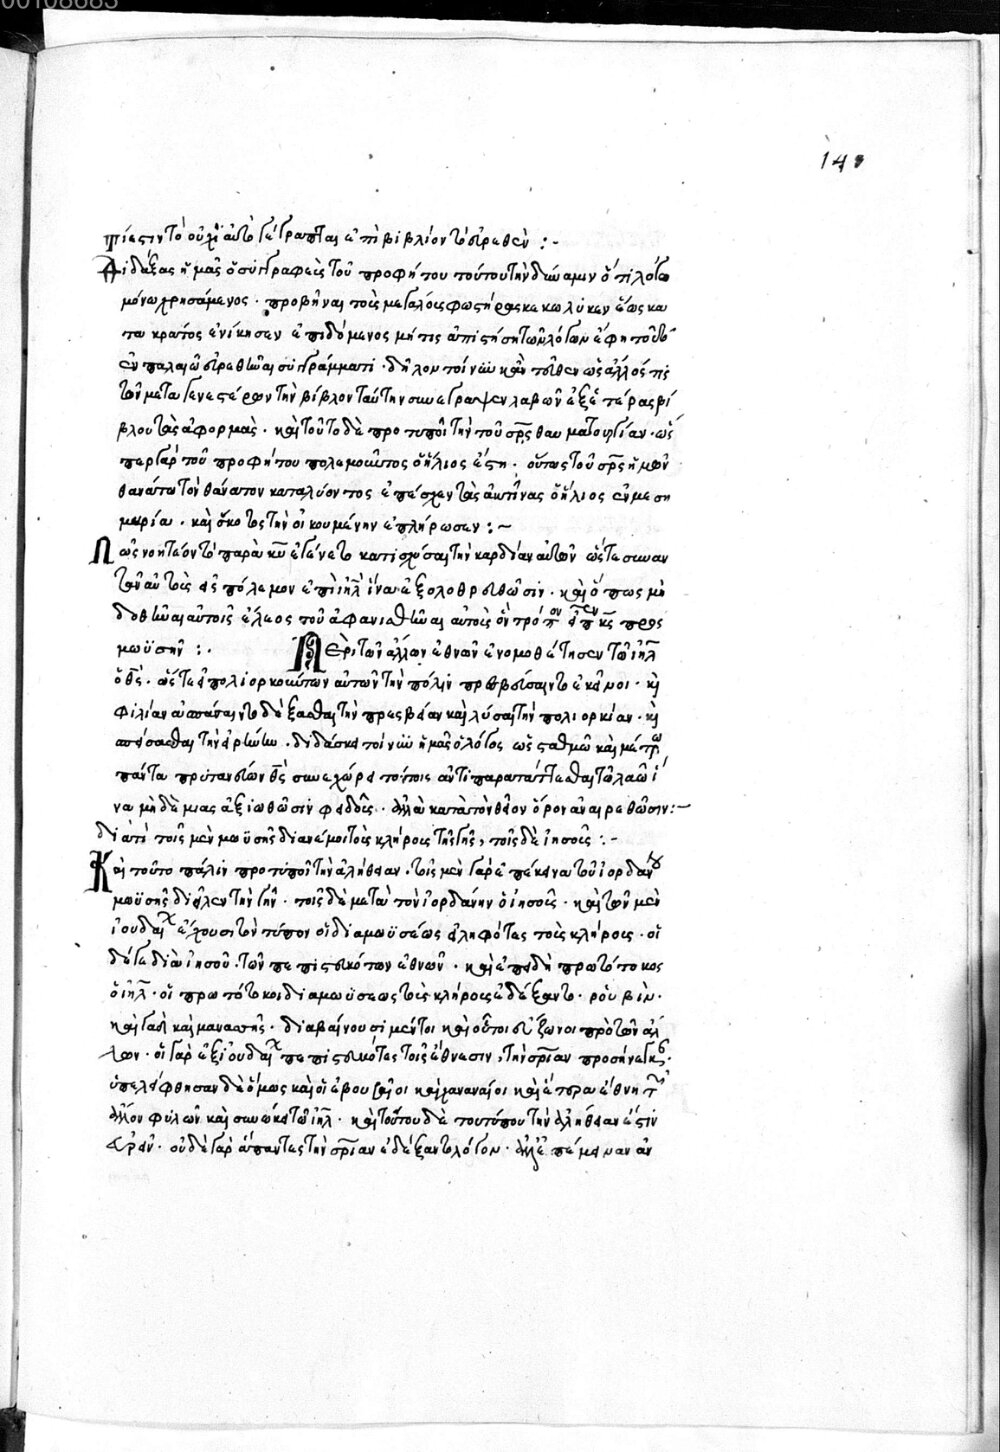 00108683
140
τί ἐστιν τὸ οὐχὶ αὐτὸ γέγραπται ἐπὶ βιβλίον τὸ εὑρεθὲν :-
Διδάξας ἡμᾶς ὁ συγγραφεὺς τοῦ προφήτου τούτου τὴν δύναμιν ὅτι λόγω
μόνω χρησάμενος · προβῆναι τοὺς μεγάλους φωστῆρας κεκώλυκεν ἕως κα
τα κράτος ἐνίκησεν ἐπιδόμενος μή τις ἀπιστήση τῶ λόγω ἔφη τοῦτο
ἐν παλαιῶ εὑρεθῆναι συγγράμματι · δῆλον τοίνυν κἀντεῦθεν ὡς ἄλλός τις
τῶν μεταγενεστέρων τὴν βίβλον ταύτην συνέγραψεν λαβὼν ἐξ ἑτέρας βί
βλου τὰς ἀφορμάς · καὶ τοῦτο δὲ προτυποῖ τὴν τοῦ σρς θαυματουργίαν · ὡς
περ γὰρ τοῦ προφήτου πολεμοῦντος ὁ ἥλιος ἔστη · οὕτως τοῦ σρς ἡμῶν
θανάτω τὸν θάνατον καταλύοντος ἐπέσχεν τὰς ἀκτῖνας ὁ ἥλιος ἐν μεση
μβρία · καὶ σκότους τὴν οἰκουμένην ἐπλήρωσεν :-
Πῶς νοητέον τὸ παρὰ κυ ἐγένετο κατισχύσαι τὴν καρδίαν αὐτῶν ὥστε συναν
τᾶν αὐτοὺς εἰς πόλεμον ἐπὶ ιηλ ἵνα ἐξολοθρευθῶσιν · καὶ ὅπως μὴ
δοθῆναι αὐτοῖς ἔλεος τοῦ ἀφανισθῆναι αὐτοὺς ὃν τρόπον εἶπεν κς πρὸς
μωϋσῆν :· Περὶ τῶν ἄλλων ἐθνῶν ἐνομοθέτησεν τῶ ιηλ
ὁ θς · ὥστε εἰ πολιορκούντων αὐτῶν τὴν πόλιν πρεσβεύσαιντο ἐκεῖνοι · καὶ
φιλίαν ἀσπάσαιντο δέξασθαι τὴν πρεσβείαν καὶ λύσαι τὴν πολιορκίαν · καὶ
σπείσασθαι τὴν εἰρήνην · διδάσκει τοίνυν ἡμᾶς ὁ λόγος ὡς σταθμῶ καὶ μέτρω
πάντα πρυτανεύων θς συνεχώρει τούτοις ἀντιπαρατάττεσθαι τῶ λαῶ ἵ
να μηδὲ μιᾶς ἀξιωθῶσιν φειδοῦς · ἀλλὰ κατὰ τὸν θεῖον ὅρον ἀναιρεθῶσιν :-
διατί τοῖς μὲν μωϋσῆς διανέμει τοὺς κλήρους τῆς γῆς, τοῖς δὲ ἰησοῦς :-
Καὶ τοῦτο πάλιν προτυποῖ τὴν ἀλήθειαν · τοῖς μὲν γὰρ ἐπέκεινα τοῦ ἰορδάνου
μωϋσῆς διεῖλεν τὴν γῆν · τοῖς δὲ μετὰ τὸν ἰορδάνην ὁ ἰησοῦς · καὶ τῶν μὲν
ἰουδαίων ἔχουσι τὸν τύπον οἱ διὰ μωϋσέως εἰληφότες τοὺς κλήρους · οἱ
δέ γε διὰ ἰησοῦ · τῶν πεπιστευκότων ἐθνῶν · καὶ ἐπειδὴ πρωτότοκος
ὁ ιηλ · οἱ πρωτότοκοι διὰ μωϋσεως τοὺς κλήρους ἐδέξαντο · ῥουβὶν ·
καὶ γαδ καὶ μανασσῆς · διαβαίνουσι μέντοι καὶ οὗτοι εὔζωνοι πρὸ τῶν ἀλ
λων · οἱ γὰρ ἐξ ἰουδαίων πεπιστευκότες τοῖς ἔθνεσιν, τὴν σρίαν προσήνεγκαν ·
ὑπελείφθησαν δὲ ὅμως καὶ οἱ ἐβουζαῖοι καὶ χαναναῖοι καὶ ἕτερα ἔθνη τῶν
ἀλλοφύλων καὶ συνώκει τῶ ιηλ · καὶ τούτου δὲ τοῦ τύπου τὴν ἀλήθειαν ἔστιν
εὑρεῖν · οὐδὲ γὰρ ἅπαντες τὴν σρίαν ἐδέξαντο λόγον · ἀλλ' ἐπέμειναν ἀν